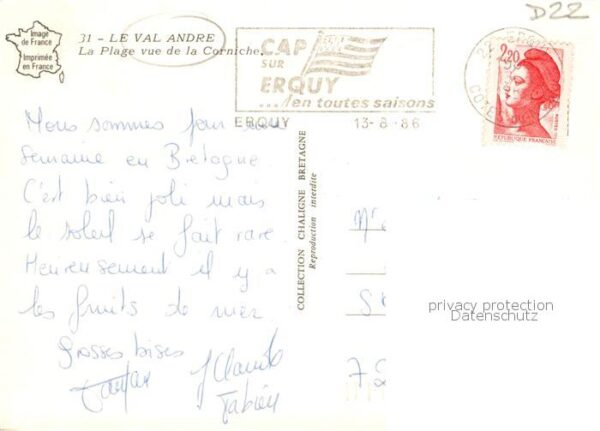 D22
Image
de France
Imprimée
en France
31 - LE VAL ANDRE
La Plage vue de la Corniche.
CAP
SUR
ERQUY
... en toutes saisons
ERQUY 13-8-86
2,20
REPUBLIQUE FRANÇAISE
Nous sommes pour une
semaine en Bretagne
C'est bien joli mais
le soleil se fait rare.
Heureusement il y a
les fruits de mer
Grosses bises
J Claude
Fabien
COLLECTION CHALIGNE BRETAGNE
Reproduction interdite
Mr
privacy protection
Datenschutz